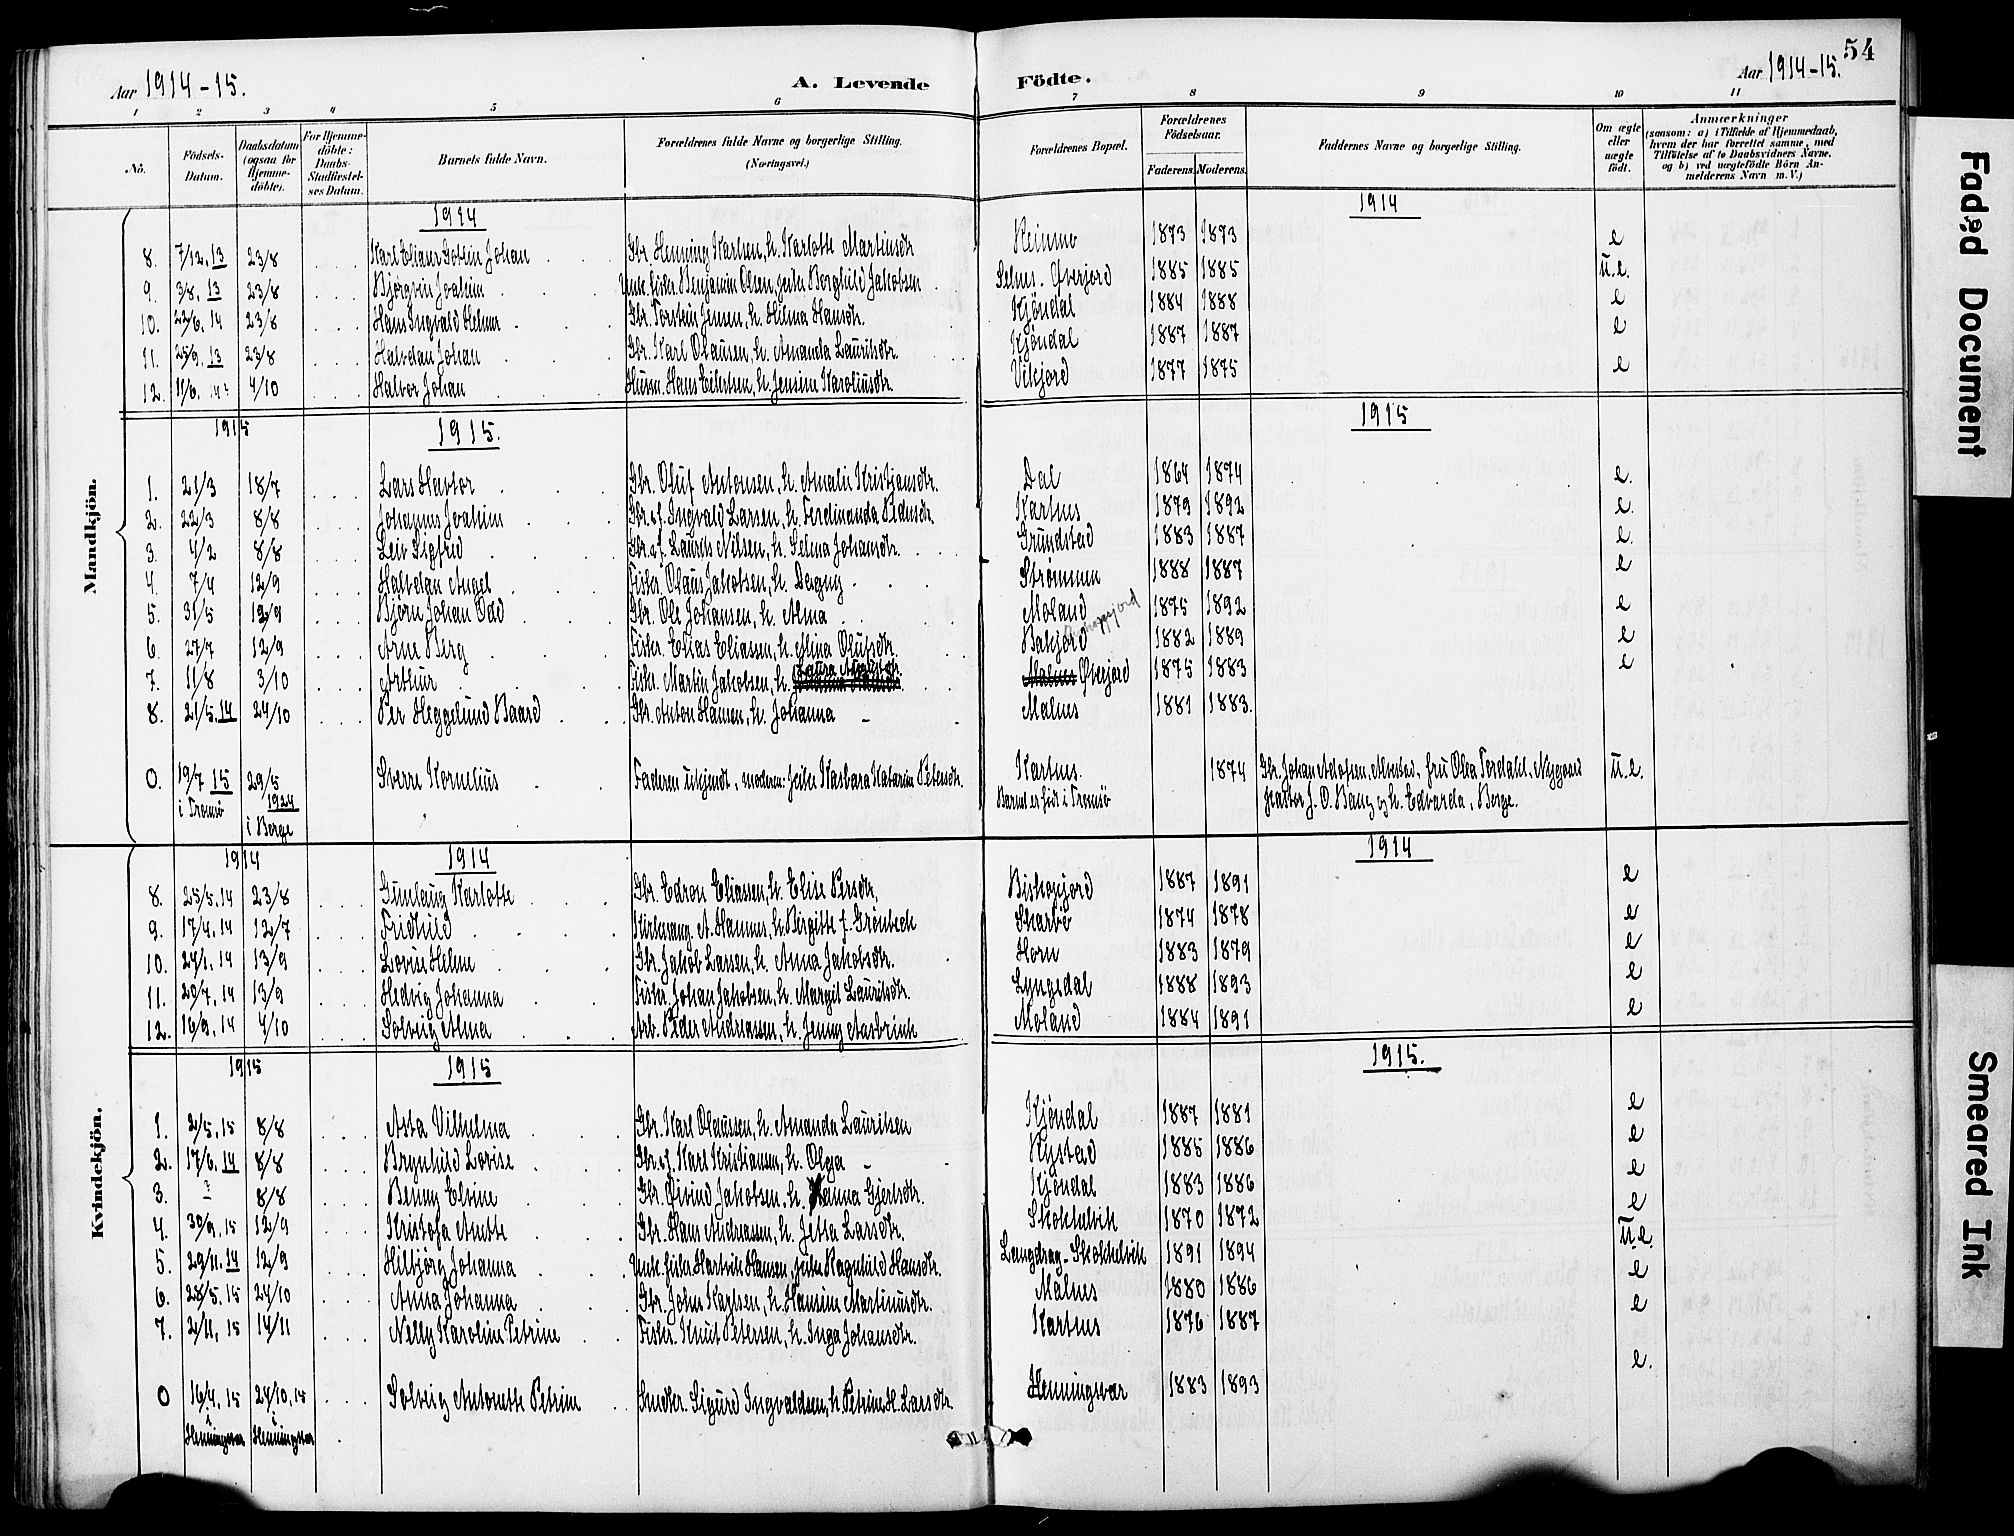 54
Aar 1914-15. A. Levende Födte. Aar 1914-15.
1 2 3 4 5 6 7 8 9 10 11
No. Födsels-Datum. Daabsdatum (ogsaa for Hjemme-döbte). For Hjemme-döbte: Daabs-Stadfæstel-ses Datum. Barnets fulde Navn. Forældrenes fulde Navne og borgerlige Stilling. (Næringsvei.) Forældrenes Bopæl. Forældrenes Födselsaar. Faderens. Moderens. Faddernes Navne og borgerlige Stilling. Om ægte eller uægte födt. Anmærkninger (saasom: a) i Tilfælde af Hjemmedaab, hvem der har forrettet samme, med Tilföielse af to Daabsvidners Navne, og b) ved uægtefödte Börn An-melderens Navn m. V.)
Mandkjön.
1914 1914
8. 7/12. 13 23/8 Karl Johan Gbr. Henning Karlsen, h. Karlotte Martinsdtr Reinmo 1873 1873 e
9. 3/8. 13 23/8 Bjørgvin Joakim Benjamin Olsen, Borghild Jakobsen Selnes. Øverjord 1885 1885 u.e.
10. 22/6. 14 23/8 Hans Ingvald Helmer Gbr. Torstein Jensen, h. Hilma Hansdtr. Kjøndal 1884 1888 e
11. 25/9. 13 23/8 Halvdan Johan Gbr. Karl Olausen, h. Amanda Lauritsdtr. Kjøndal 1887 1887 e
12. 11/6. 14 4/10 Halvor Johan Husm. Hans Eilertsen, h. Jensine Karoliusdtr. Vikjord 1877 1875 e
1915 1915. 1915
1. 21/3 18/7 Lars Havtor Gbr. Oluf Antonsen, h. Amalie Kristjansdtr. Dal 1864 1874 e.
2. 22/3 8/8 Johannes Joakim Gbr. s. Ingvald Larsen, h. Ferdinanda Kartnes 1879 1892 e.
3. 4/2 8/8 Leiv Sigfred Gbr. s. Laurits Nilsen, h. Selma Johansdtr. Grundstad 1883 1887 e.
4. 7/4 12/9 Halvdan Angel Fisker. Olaus Jakobsen, h. Dagny - Strømmen 1888 1887 e
5. 31/5 12/9 Bjørn Johan Odd Gbr. Ole Johansen, h. Alma Moland 1875 1892 e
6. 27/7 12/9 Arne Berg Fisker. Elias Eliassen, h. Mina Olufsdtr. Bakjord 1882 1889 e
7. 11/8 3/10 Arthur Fisker. Martin Jakobsen, h. Laura Malnes Øverjord 1875 1883 e
8. 21/5. 14 24/10 Per Heggelund Baard Gbr. Anton Hansen, h. Johanna - Malnes 1881 1883.
0. 19/7 15 29/5 Sverre Kornelius Faderen ukjendt, moderen: Barbara Katarina Petersdtr. Kartnes. 1874 Gbr. Johan Adolfsen, Alvestad, fru Olea Tordahl, Nygaard u.e.
i Tromsö 1924 Barnet er födt i Tromsö J. O. Bang og h. Edvarda, Berge.
i Berge
Kvindekjön.
1914 1914 1914
8. 25/5. 14 23/8 Gunlaug Karlotte Gbr. Edron Eliassen, h. Elise Persdtr. Biskopjord 1887 1891 e
9. 17/4. 14 12/7 Fridhild Kirkesang. A. Hannes, h. Birgitte f. Grönbech Skarbö 1874 1878 e
10. 24/1. 14 13/9 Lovise Helene Gbr. Jakob Larsen, h. Anna Jakobsdtr. Horn 1883 1879 e
11. 20/7. 14 13/9 Hedvig Johanna Fisker. Johan Jakobsen, h. Margit Lauritsdtr. Lyngedal 1888 1893 e
12. 16/9. 14 4/10 Solveig Alma Arb. Peder Andreassen, h. Jenny Aasbrink Moland 1884 1891 e
1915 1915 1915.
1. 2/5. 15 8/8 Asta Vilhelma Gbr. Karl Olaussen, h. Amanda Lauritsen Kjøndal 1887 1881 e
2. 17/6. 14 8/8 Brynhild Lovise Gbr. s. Karl Kristiansen, h. Olga - Rystad 1885 1886 e
3. ? 8/8 Benny Elvine Gbr. Øivind Jakobsen, h. Hanna Gjertsdtr. Kjøndal 1883 1886 e
4. 30/9. 15 12/9 Kristofa Anette Gbr. Hans Andreassen, h. Jetta Larsdtr. Skokkelvik 1870 1872 e
5. 29/11. 14 12/9 Hilbjörg Johanna Hartvik Hansen, Ragnhild Hansdtr. Langdrag - Skokkelvik 1891 1894 u.e.
6. 28/5. 15 24/10 Anna Johanna Gbr. John Karlsen, h. Hansine Martinusdtr. Malnes 1880 1886 e
7. 2/11. 15 14/11 Nelly Karoline Petrine Fisker. Knut Petersen, h. Inga Johansdtr. Kartnes 1876 1887 e
0 16/4. 15 24/10. 15 Solveig Antonette Petrine Snedker. Sigurd Ingvaldsen, h. Petrine H. Larsdtr. Henningsvær 1883 1893 e.
i Henningsvær i Henningsvær
Faded Document
Smeared Ink